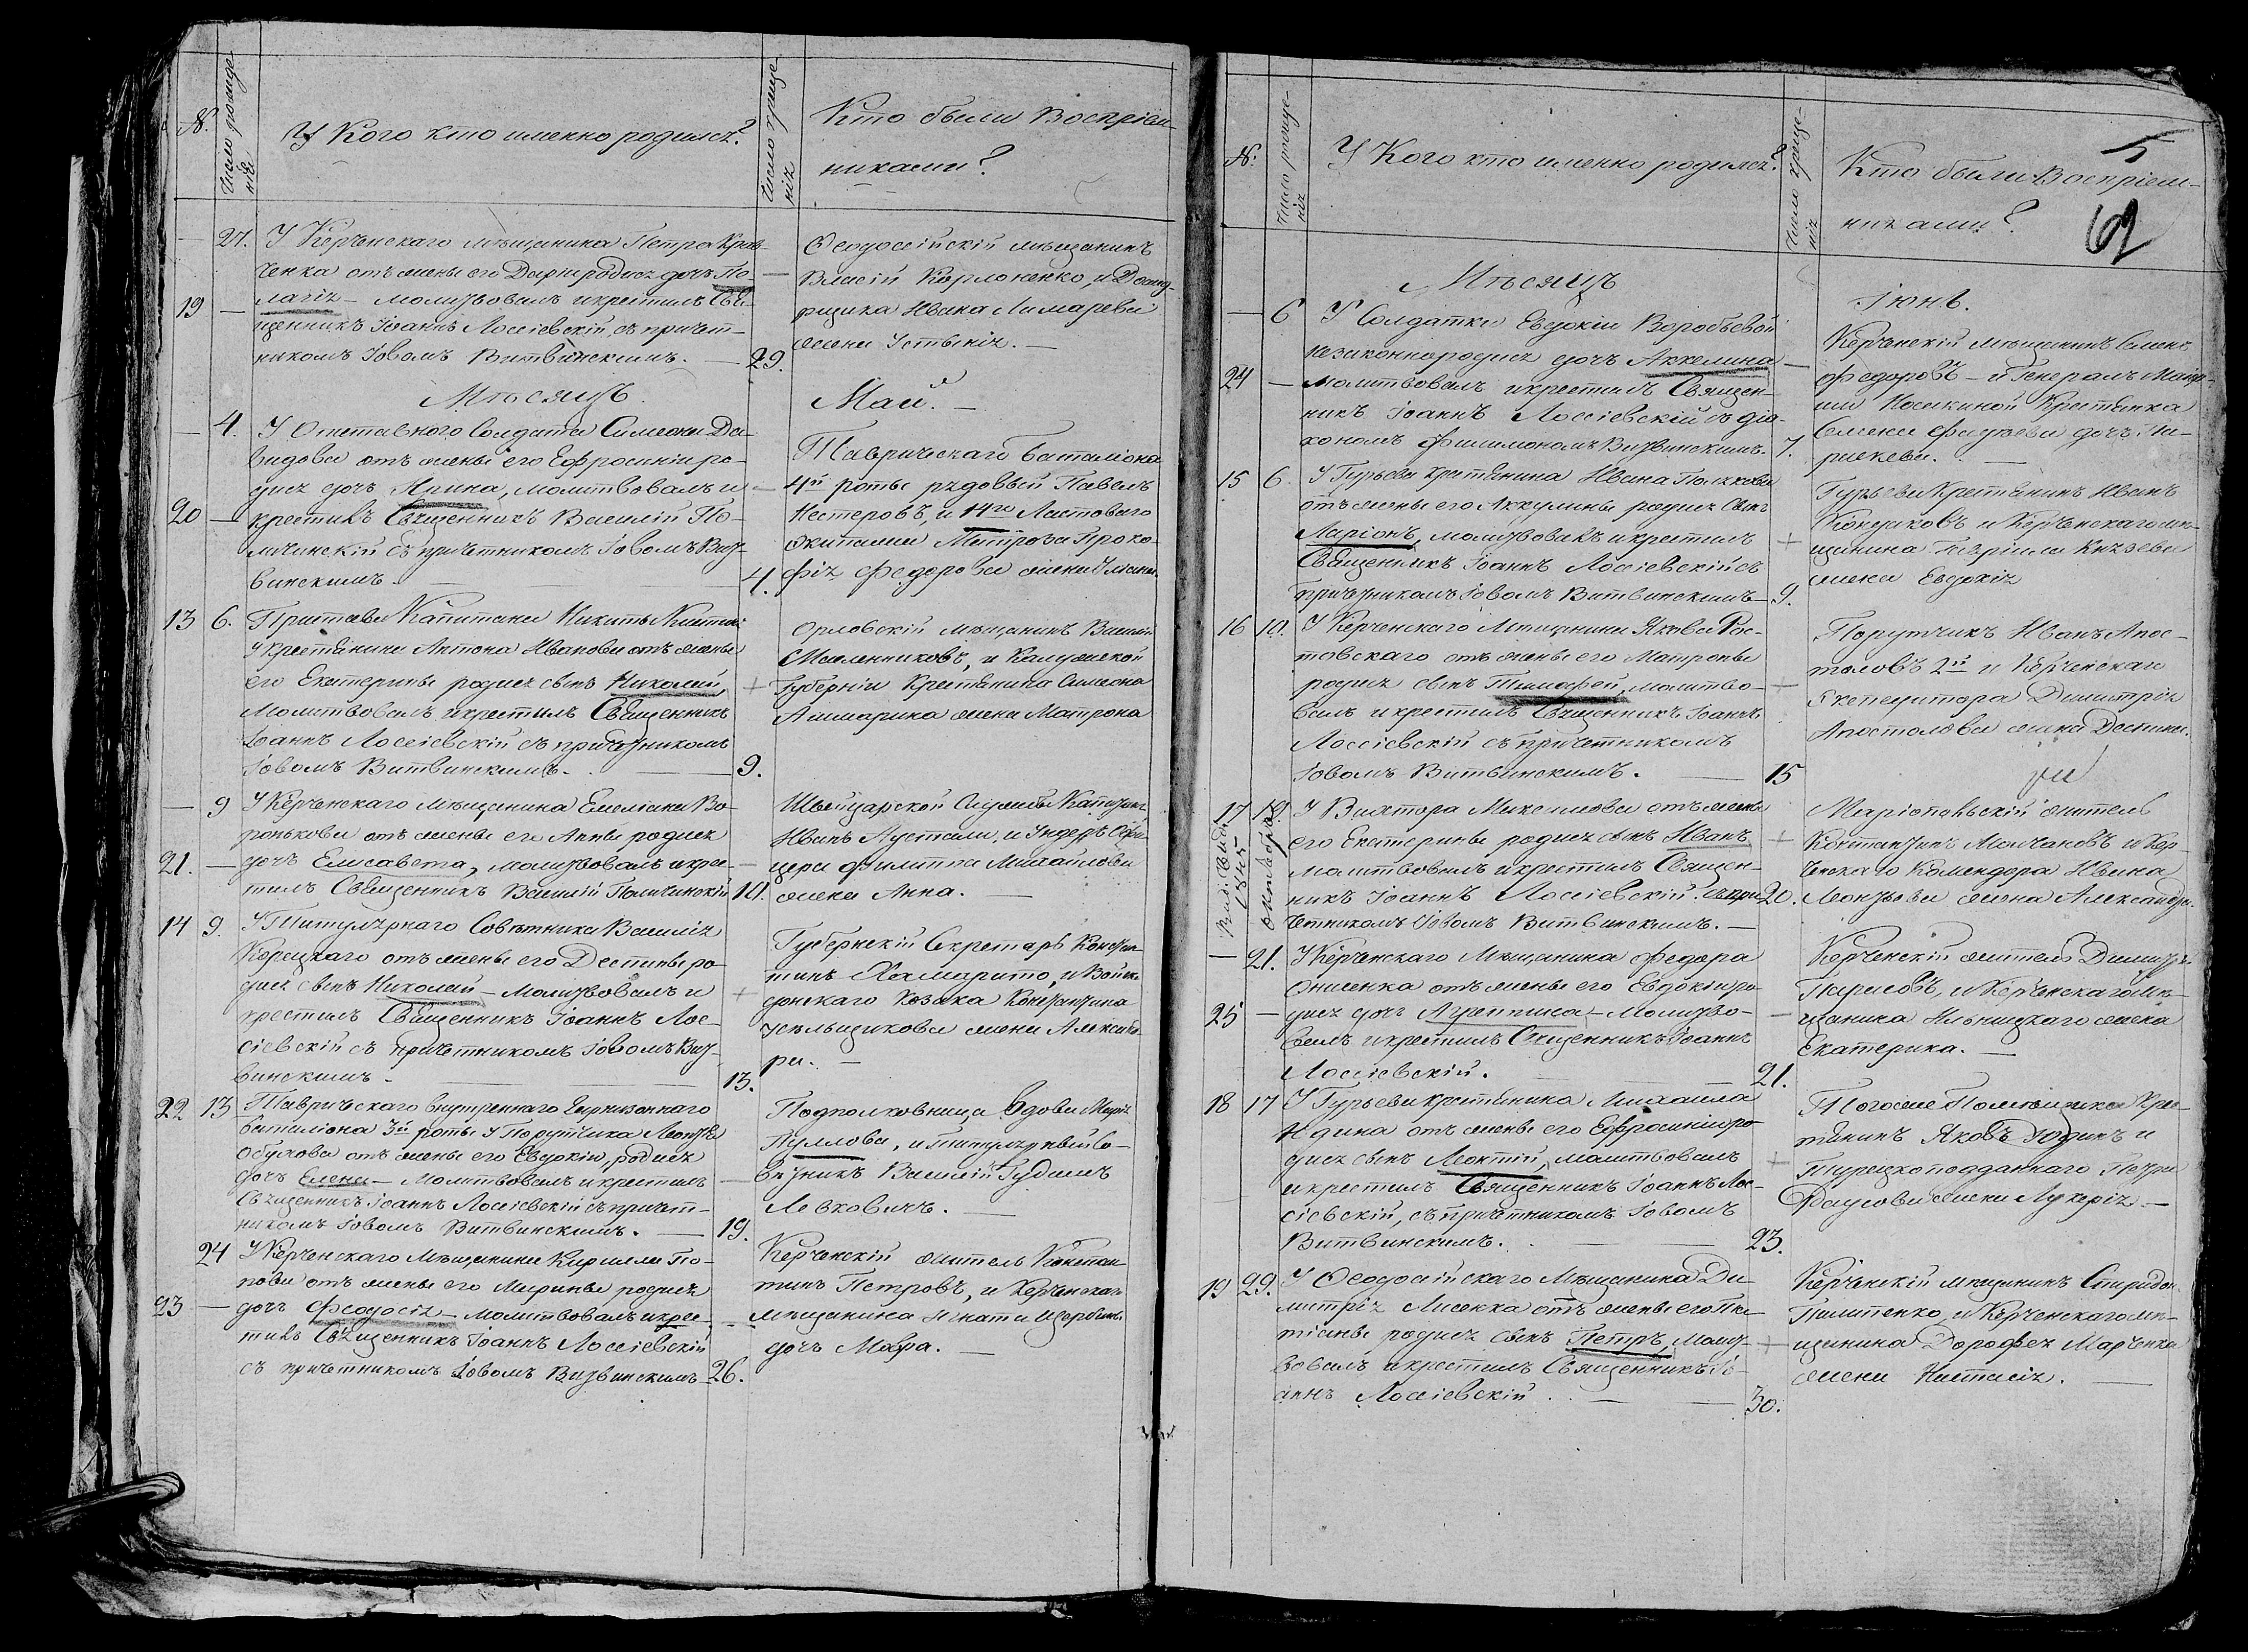 №.
Число рожде-
нія
У Кого кто именно родился?
Число креще-
нія
Кто были Воспріем-
никами?
27. У Керченскаго мѣщанина Петра Крав-
ченка отъ жены его Даріи родися дочь Пе-
19 — лагія — молитвовалъ и крестилъ Свя-
щенникъ Іоаннъ Лоссіевскій съ причет-
никомъ Іовомъ Витвинскимъ. — 29.
Ѳеодосійскій мѣщанинъ
Власій
жена Устинія. —
Мѣсяцъ
Май. —
— 4. У Отставного Солдата Симеона Да-
видова отъ жены его Ефросиніи ро-
дися дочь Ирина, молитвовалъ и
20 — крестилъ Священникъ Василій По-
личинскій съ причетникомъ Іовомъ Вит-
винскимъ — 4.
Таврическаго баталіона
4й роты рядовый Павелъ
Нестеровъ, и 14го Ластоваго
экипажа Матроса Проко-
фія Федорова жена
13 6. Пристава Капитана Никиты
у крестьянина Антона Иванова отъ жены
его Екатерины родися сынъ Николай,
Молитвовалъ и крестилъ Священникъ
Іоаннъ Лоссіевскій съ причетникомъ
Іовомъ Витвинскимъ. — 9.
Орловскій мѣщанинъ Василій
Масленниковъ, и Калужской
Губерніи Крестьянина Симеона
жена Матрона
— 9 У Керченскаго Мѣщанина Емеліана Во-
ронькова отъ жены его Анны родися
21. — дочь Елисавета, молитвовалъ и крес-
тилъ Священникъ Василій Поличинскій 10.
Швейцарской Службы Капитанъ
Иванъ и Ундеръ Офи-
цера Филиппа Михайлова
жена Анна. —
14 9. У Титулярнаго Совѣтника Василія
Корецкаго отъ жены его Деспины ро-
дися сынъ Николай — Молитвовалъ и
крестилъ Священникъ Іоаннъ Лос-
сіевскій съ причетникомъ Іовомъ Вит-
винскимъ — 13.
Губернскій Секретарь Констан-
тинъ и Войска
донскаго Козака Константина
жена Александ-
ра. —
22 13 Таврическаго внутренняго Гарнизоннаго
баталіона 3й роты у Порутчика Леонтія
Обухова отъ жены его Евдокіи, родися
дочь Елена — Молитвовалъ и крестилъ
Священникъ Іоаннъ Лоссіевскій съ причет-
никомъ Іовомъ Витвинскимъ. — 19.
Подполковница вдова Марія
Пуллова, и титулярный со-
вѣтникъ Василій Гудимъ
Левковичъ. —
24 У Керченскаго Мѣщанина Кирилла По-
пова отъ жены его Марины родися
23 — дочь Феодосія — Молитвовалъ и крес-
тилъ Священникъ Іоаннъ Лоссіевскій
съ причетникомъ Іовомъ Витвинскимъ — 26.
Керченскій житель Констан-
тинъ Петровъ, и Керченскаго
мѣщанина Игната Щербины
дочь Мавра. —
№:
Число рожде-
нія
У Кого кто именно родился?
Число креще-
нія
Кто были Воспріем-
никами?
5
62
Мѣсяцъ
Іюнь.
— 6 У Солдатки Евдокіи Воробьевой
незаконнородися дочь Аккелина
24 — молитвовалъ и крестилъ Священ-
никъ Іоаннъ Лоссіевскій съ діа-
кономъ Филимономъ Витвинскимъ. 7.
Керченскій мѣщанинъ Семенъ
Федоровъ — и Генералъ Маіор-
ши Крестьянка
Семена дочь Па-
раскева. —
15 6. У Гурьева крестьянина Ивана Полякова
отъ жены его Аккулины родися сынъ
Ларіонъ, молитвовалъ и крестилъ
Священникъ Іоаннъ Лоссіевскій съ
причетникомъ Іовомъ Витвинскимъ — 9.
Гурьева Крестьянинъ Иванъ
Кондаковъ и Керченскаго мѣ-
щанина Гавріила Князева
жена Евдокія
16 10. У Керченскаго Мѣщанина Якова Рос-
товскаго отъ жены его Матроны
родися сынъ Тимофей, молитво-
валъ и крестилъ Священникъ Іоаннъ
Лоссіевскій съ причетникомъ
Іовомъ Витвинскимъ. — 15
Порутчикъ Иванъ Апос-
толовъ 2й и Керченскаго
Експедитора Димитрія
Апостолова жена Деспина.
17 19. У Виктора Микешова отъ жены
его Екатерины родися сынъ Иванъ
молитвовалъ и крестилъ Священ-
никъ Іоаннъ Лоссіевскій съ при- 20.
четникомъ Іовомъ Витвинскимъ. —
1845
октября
Маріопольскій житель
Константинъ Молчановъ и Кер-
ченскаго Комендора Ивана
Леонтьева жена Александра.
— 21. У Керченскаго Мѣщанина Федора
Онисенка отъ жены его Евдокіи ро-
25 — дися дочь Агриппина — Молитво-
валъ и крестилъ Священникъ Іоаннъ
Лоссіевскій. — 21.
Керченскій житель Димитрій
Парисовъ, и Керченскаго Мѣ-
щанина Ильницкаго жена
Екатерина. —
18 17 У Гурьева крестьянина Михаила
Юдина отъ жены его Ефросиніи ро-
дися сынъ Леонтій, молитвовалъ
и крестилъ Священникъ Іоаннъ Лос-
сіевскій, съ причетникомъ Іовомъ
Витвинскимъ. — 23.
Тогоже Помѣщика Крес-
тьянинъ Яковъ Юдинъ и
Турецкоподданнаго Петра
жена Лукерія. —
19 29. У Ѳеодосійскаго Мѣщанина Ди-
митрія Лисенка отъ жены его Та-
тіаны родися сынъ Петръ, Молит-
вовалъ и крестилъ Священникъ Іо-
аннъ Лоссіевскій. — 30.
Керченскій мѣщанинъ Спиридонъ
Пилипенко, и Керченскаго мѣ-
щанина Дорофея Марченка
жена Настасія. —